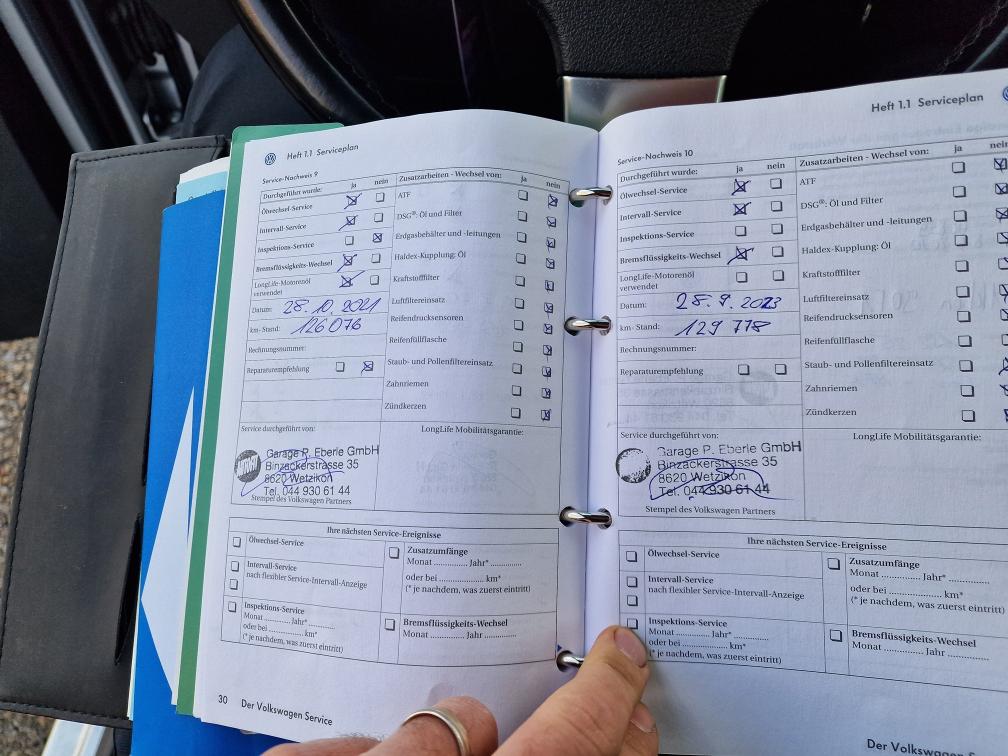 Heft 1.1 Serviceplan
Service-Nachweis 9
Durchgeführt wurde: ja nein
Ölwechsel-Service
Intervall-Service
Inspektions-Service
Bremsflüssigkeits-Wechsel
LongLife-Motorenöl
verwendet
Datum: 28.10.2021
km-Stand: 126 076
Rechnungsnummer:
Reparaturempfehlung
Zusatzarbeiten - Wechsel von: ja nein
ATF
DSG®: Öl und Filter
Erdgasbehälter und -leitungen
Haldex-Kupplung: Öl
Kraftstofffilter
Luftfiltereinsatz
Reifendrucksensoren
Reifenfüllflasche
Staub- und Pollenfiltereinsatz
Zahnriemen
Zündkerzen
Service durchgeführt von:
Garage P. Eberle GmbH
Binzackerstrasse 35
8620 Wetzikon
Tel. 044 930 61 44
Stempel des Volkswagen Partners
LongLife Mobilitätsgarantie:
Ihre nächsten Service-Ereignisse
Ölwechsel-Service
Intervall-Service
nach flexibler Service-Intervall-Anzeige
Inspektions-Service
Monat ........... Jahr* ...........
oder bei ........... km*
(* je nachdem, was zuerst eintritt)
Zusatzumfänge
Monat ........... Jahr* ...........
oder bei ........... km*
(* je nachdem, was zuerst eintritt)
Bremsflüssigkeits-Wechsel
Monat ........... Jahr ...........
30 Der Volkswagen Service
Heft 1.1 Serviceplan
Service-Nachweis 10
Durchgeführt wurde: ja nein
Ölwechsel-Service
Intervall-Service
Inspektions-Service
Bremsflüssigkeits-Wechsel
LongLife-Motorenöl
verwendet
Datum: 28.9.2023
km-Stand: 129 778
Rechnungsnummer:
Reparaturempfehlung
Zusatzarbeiten - Wechsel von: ja nein
ATF
DSG®: Öl und Filter
Erdgasbehälter und -leitungen
Haldex-Kupplung: Öl
Kraftstofffilter
Luftfiltereinsatz
Reifendrucksensoren
Reifenfüllflasche
Staub- und Pollenfiltereinsatz
Zahnriemen
Zündkerzen
Service durchgeführt von:
Garage P. Eberle GmbH
Binzackerstrasse 35
8620 Wetzikon
Tel. 044 930 61 44
Stempel des Volkswagen Partners
LongLife Mobilitätsgarantie:
Ihre nächsten Service-Ereignisse
Ölwechsel-Service
Intervall-Service
nach flexibler Service-Intervall-Anzeige
Inspektions-Service
Monat ........... Jahr* ...........
oder bei ........... km*
(* je nachdem, was zuerst eintritt)
Zusatzumfänge
Monat ........... Jahr* ...........
oder bei ........... km*
(* je nachdem, was zuerst eintritt)
Bremsflüssigkeits-Wechsel
Monat ........... Jahr ...........
Der Volkswagen